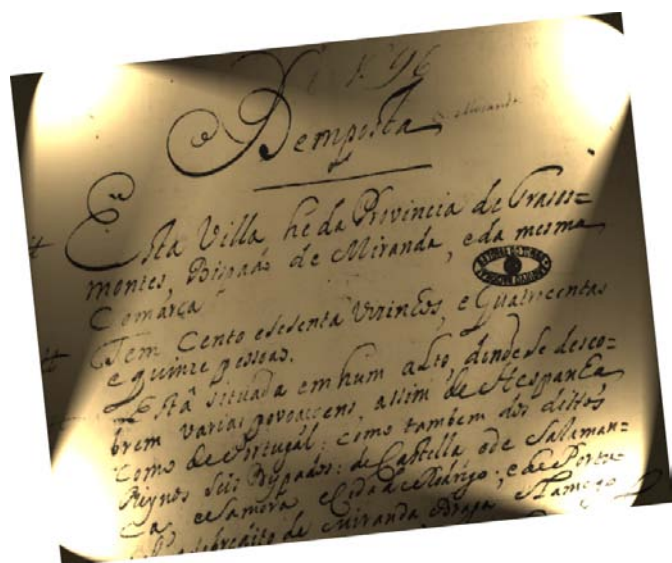 N 96
Bemposta
Esta Villa, he da Provincia de Trasos=
montes, Bispado de Miranda, e da mesma
Comarca
Tem Cento e sesenta Vizinhos, e quatrocentas
e quinze pessoas.
Está situada em hum alto, donde se desco=
brem varias povoaçoens, assim de Hespanha
como de Portugal: como tambem dos dittos
Reynos seis Bispados: de Castella o de Salaman=
ca, e Samora, e Cidade Rodrigo; e de Portu=
de Miranda Braga e Lamego